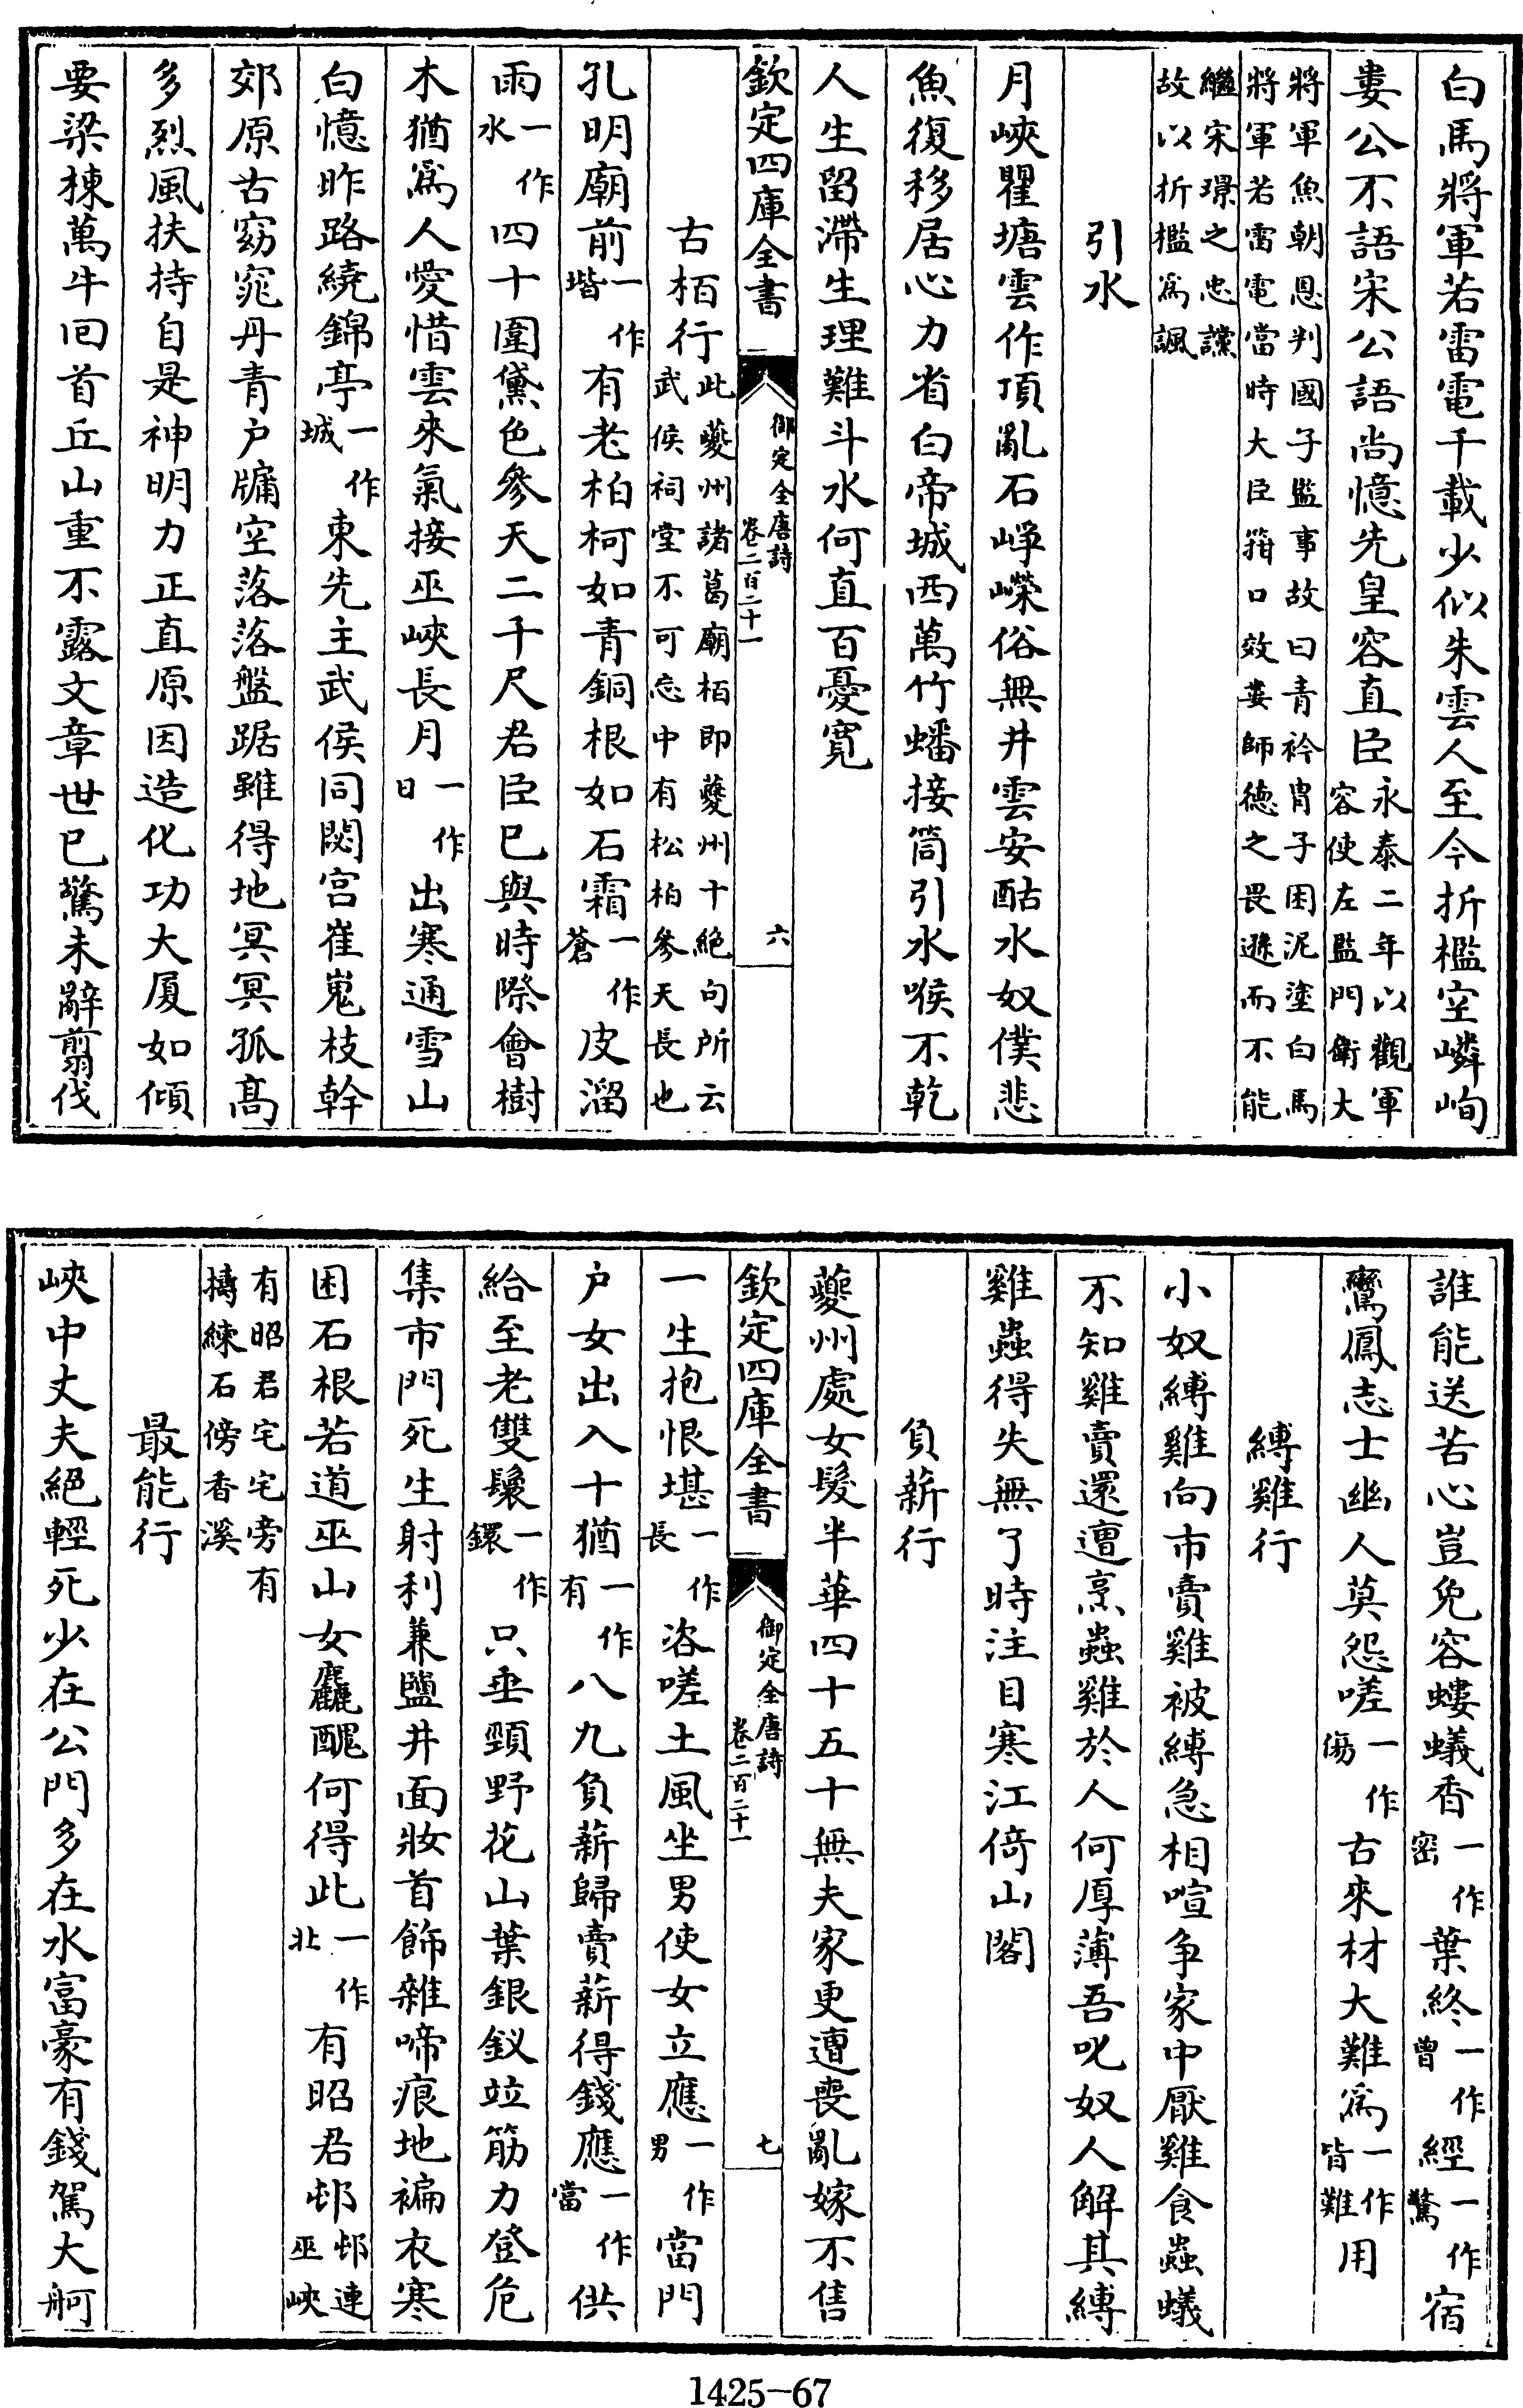 白馬將軍若雷電千載少似朱雲人至今折檻空嶙峋
婁公不語宋公語尚憶先皇容直臣永泰二年以觀軍容使左監門衛大
將軍魚朝恩判國子監事故曰青衿胄子困泥塗白馬將軍若雷電當時大臣箝口效婁師徳之畏遜而不能
繼宋璟之忠讜故以折檻為諷
引水
月峽瞿塘雲作頂亂石崢嶸俗無井雲安酤水奴僕悲
魚復移居心力省白帝城西萬竹蟠接筒引水喉不乾
人生留滯生理難斗水何直百憂寛
欽定四庫全書
御定全唐詩
卷二百二十一
六
古栢行此夔州諸葛廟栢即夔州十絶句所云武侯祠堂不可忘中有松柏參天長也
孔明廟前一作堦有老柏柯如青銅根如石霜一作蒼皮溜
雨一作水四十圍黛色參天二千尺君臣已與時際會樹
木猶為人愛惜雲來氣接巫峽長月一作日出寒通雪山
白憶昨路繞錦亭一作城東先主武侯同閟宫崔嵬枝幹
郊原古窈窕丹青户牖空落落盤踞雖得地冥冥孤髙
多烈風扶持自是神明力正直原因造化功大厦如傾
要梁棟萬牛回首丘山重不露文章世已驚未辭翦伐
誰能送苦心豈免容螻蟻香一作密葉終一作曾經一作驚宿
鸞鳳志士幽人莫怨嗟一作傷古來材大難為一作皆難用
縛雞行
小奴縛雞向市賣雞被縛急相喧争家中厭雞食蟲蟻
不知雞賣還遭烹蟲雞於人何厚薄吾叱奴人解其縛
雞蟲得失無了時注目寒江倚山閣
負薪行
夔州處女髮半華四十五十無夫家更遭喪亂嫁不售
欽定四庫全書
御定全唐詩
卷二百二十一
七
一生抱恨堪一作長咨嗟土風坐男使女立應一作男當門
户女出入十猶一作有八九負薪歸賣薪得錢應一作當供
給至老雙鬟一作鐶只垂頸野花山葉銀釵竝筋力登危
集市門死生射利兼鹽井面妝首飾雜啼痕地褊衣寒
困石根若道巫山女麤醜何得此一作北有昭君邨邨連巫峽
有昭君宅宅旁有擣練石傍香溪
最能行
峽中丈夫絕輕死少在公門多在水富豪有錢駕大舸
1425—67